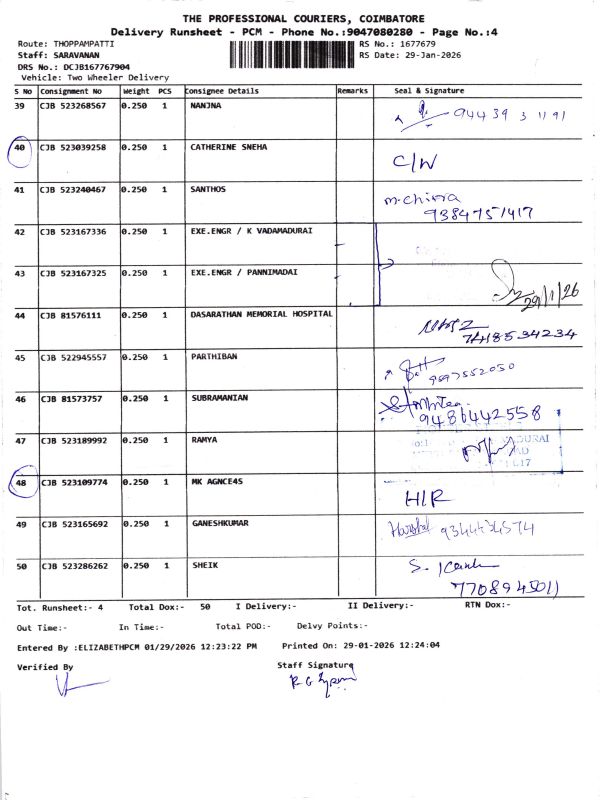 THE PROFESSIONAL COURIERS, COIMBATORE
Delivery Runsheet - PCM - Phone No.:9047080280 - Page No.:4
Route: THOPPAMPATTI
RS No.: 1677679
Staff: SARAVANAN
RS Date: 29-Jan-2026
DRS No.: DCJB167767904
Vehicle: Two Wheeler Delivery
S NO Consignment No Weight PCS Consignee Details Remarks Seal & Signature
39 CJB 523268567 0.250 1 NANJNA
40 CJB 523039258 0.250 1 CATHERINE SNEHA C/W
41 CJB 523240467 0.250 1 SANTHOS
42 CJB 523167336 0.250 1 EXE.ENGR / K VADAMADURAI
43 CJB 523167325 0.250 1 EXE.ENGR / PANNIMADAI 29/1/26
44 CJB 81576111 0.250 1 DASARATHAN MEMORIAL HOSPITAL 7418534234
45 CJB 522945557 0.250 1 PARTHIBAN
46 CJB 81573757 0.250 1 SUBRAMANIAN 9486442558
47 CJB 523189992 0.250 1 RAMYA
48 CJB 523109774 0.250 1 MK AGNCE4S H/R
49 CJB 523165692 0.250 1 GANESHKUMAR
50 CJB 523286262 0.250 1 SHEIK
Tot. Runsheet:- 4 Total Dox:- 50 I Delivery:- II Delivery:- RTN Dox:-
Out Time:- In Time:- Total POD:- Delvy Points:-
Entered By :ELIZABETHPCM 01/29/2026 12:23:22 PM Printed On: 29-01-2026 12:24:04
Verified By Staff Signature